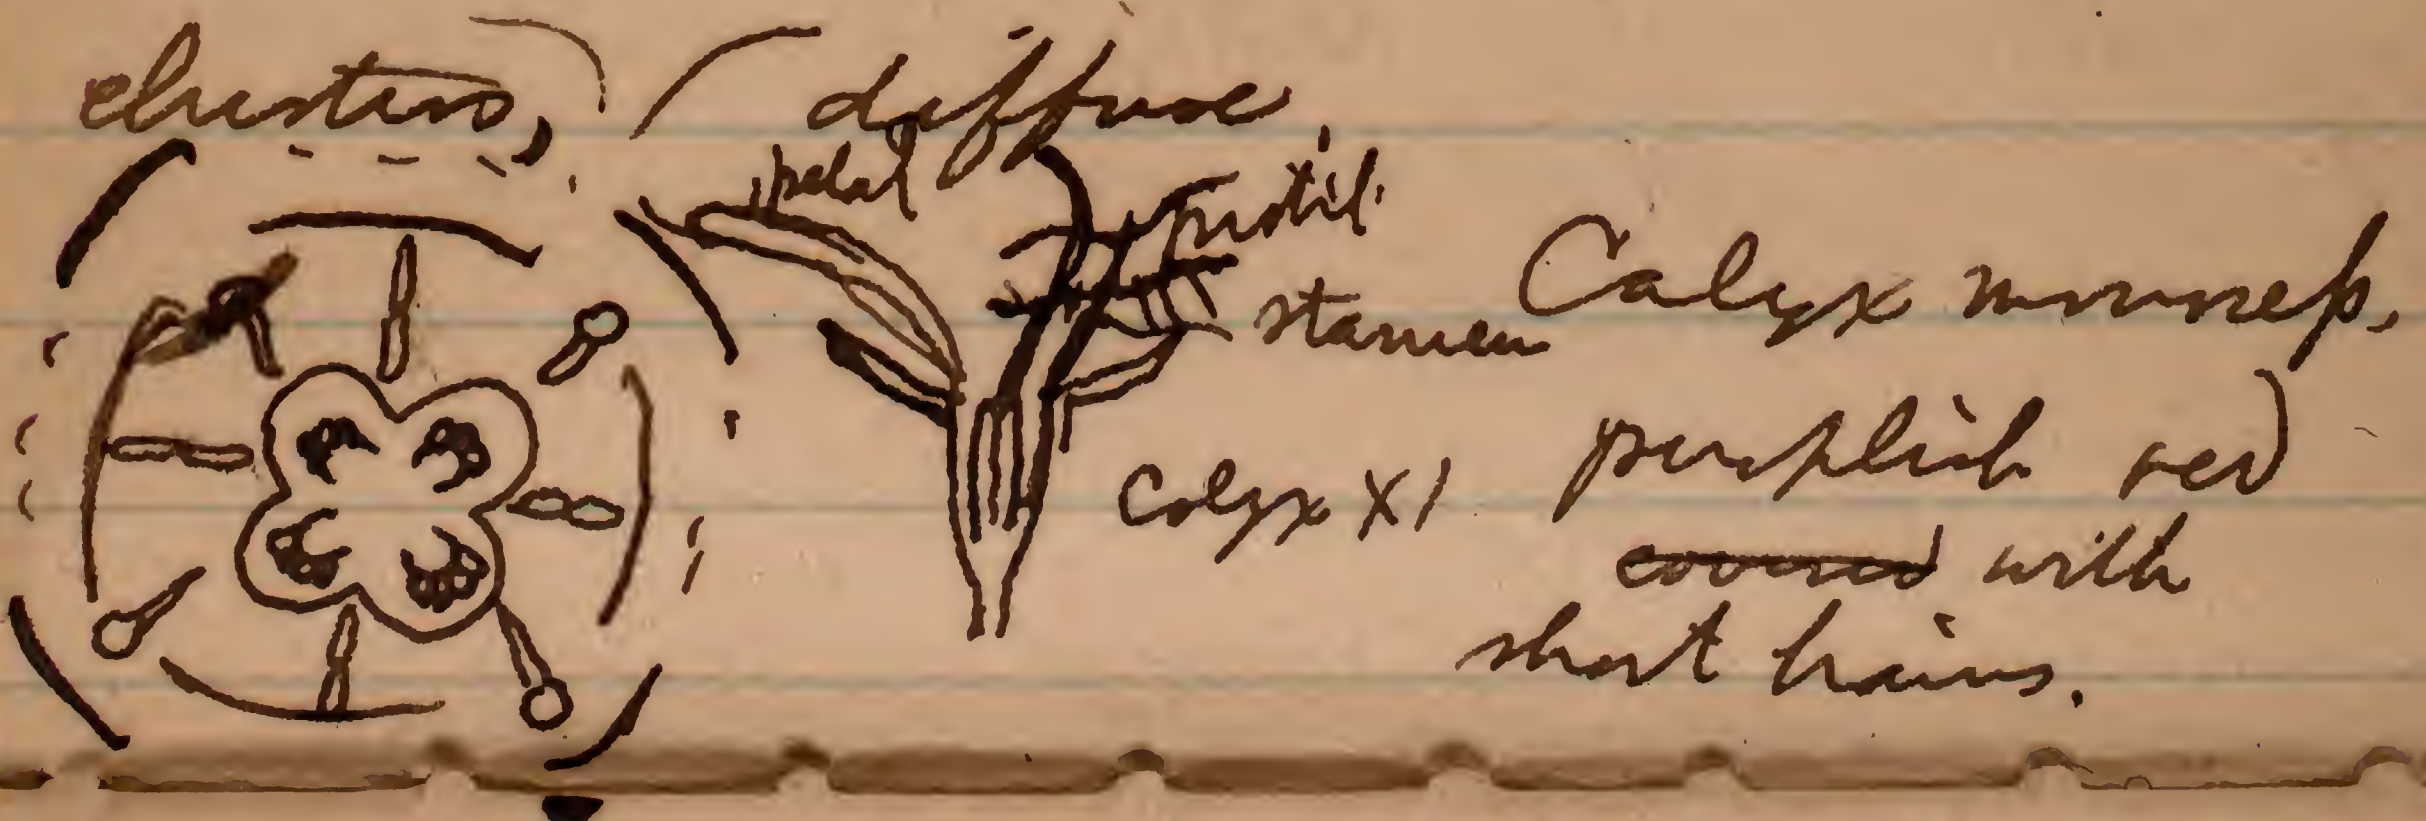 clusters, diffuse,
petal
pistil
stamen
Calyx monosep.
Calyx X1
purplish red
covered with
short hairs.